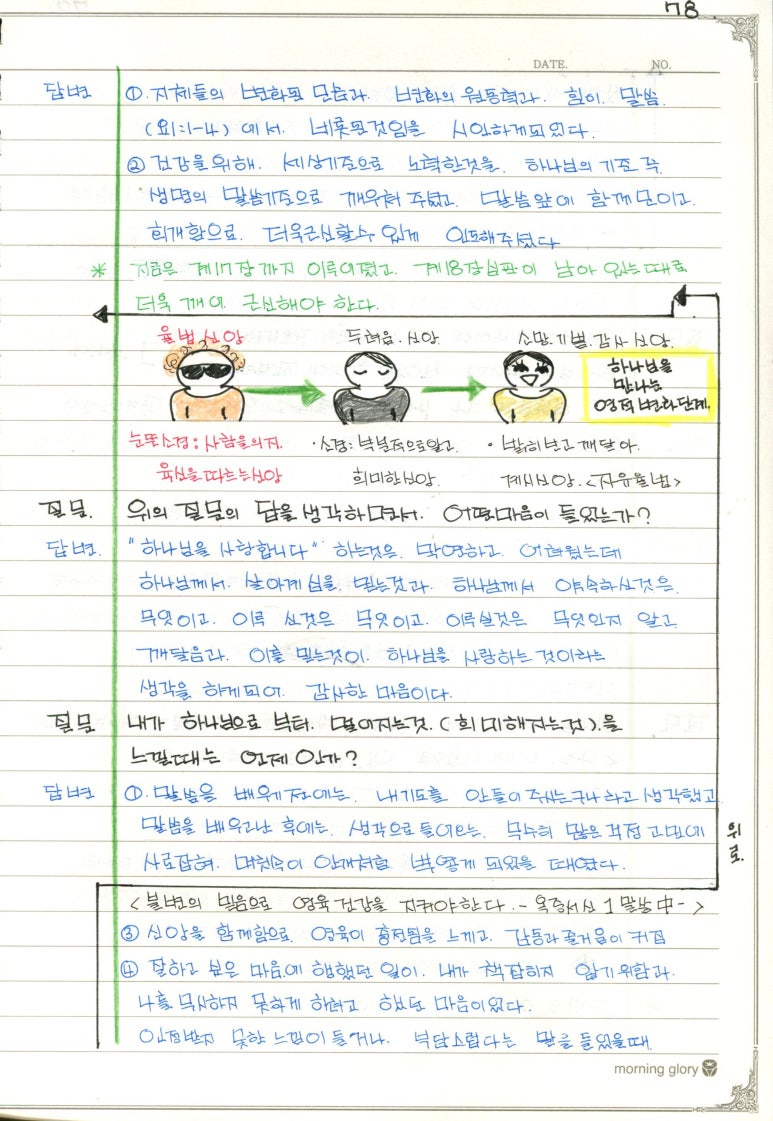 78
DATE. NO.
답변 ①. 지체들의 변화된 모습과. 변화의 원동력과. 힘이. 말씀.
(요1:1-4) 에서. 비롯된것임을 시인하게되었다.
② 건강을위해. 세상기준으로 노력한것을. 하나님의 기준 즉.
생명의 말씀기준으로 깨우쳐 주셨고. 말씀앞에 함께 모이고.
회개함으로. 더욱근신할수 있게 인도해주셨다
* 지금은 계17장까지 이루어졌고. 계18장심판이 남아 있는때로
더욱 깨어 근신해야 한다.
율법신앙 두려움.신앙 소망.기쁨.감사 신앙.
하나님을
만나는
영적변화단계.
눈뜬소경: 사람을의지. ·소경: 부분적으로알고. • 밝히보고깨달아.
육신을따르는신앙 희미한신앙. 계시신앙.<자유율법>
질문. 위의 질문의 답을생각하면서. 어떤마음이 들었는가?
답변. "하나님을 사랑합니다" 하는것은. 막연하고. 어려웠는데
하나님께서. 살아계심을 믿는것과. 하나님께서 약속하신것은.
무엇이고. 이루신것은 무엇이고. 이루실것은 무엇인지 알고.
깨달음과. 이를 믿는것이. 하나님을 사랑하는것이라는
생각을 하게되어. 감사한마음이다.
질문 내가 하나님으로 부터. 멀어지는것.(희미해지는것).을
느낄때는 언제 인가?
답변 ①. 말씀을 배우기전에는. 내기도를 안들어주시는구나하고 생각했고.
말씀을 배우고난 후에는. 생각으로 들어오는. 무수히 많은걱정 고민에
사로잡혀. 머릿속이 안개처럼 뿌옇게 되었을 때였다.
위로.
<불변의 믿음으로 영육건강을 지켜야한다. - 옥중서신 1 말씀 中->
③ 신앙을 함께함으로. 영육이 충전됨을 느끼고. 감동과즐거움이 커짐
④ 잘하고 싶은 마음에 행했던 일이. 내가 책잡히지 않기위함과.
나를 무시하지 못하게 하려고 했던 마음이었다.
인정받지 못한 느낌이 들거나. 부담스럽다는 말을 들었을때.
morning glory